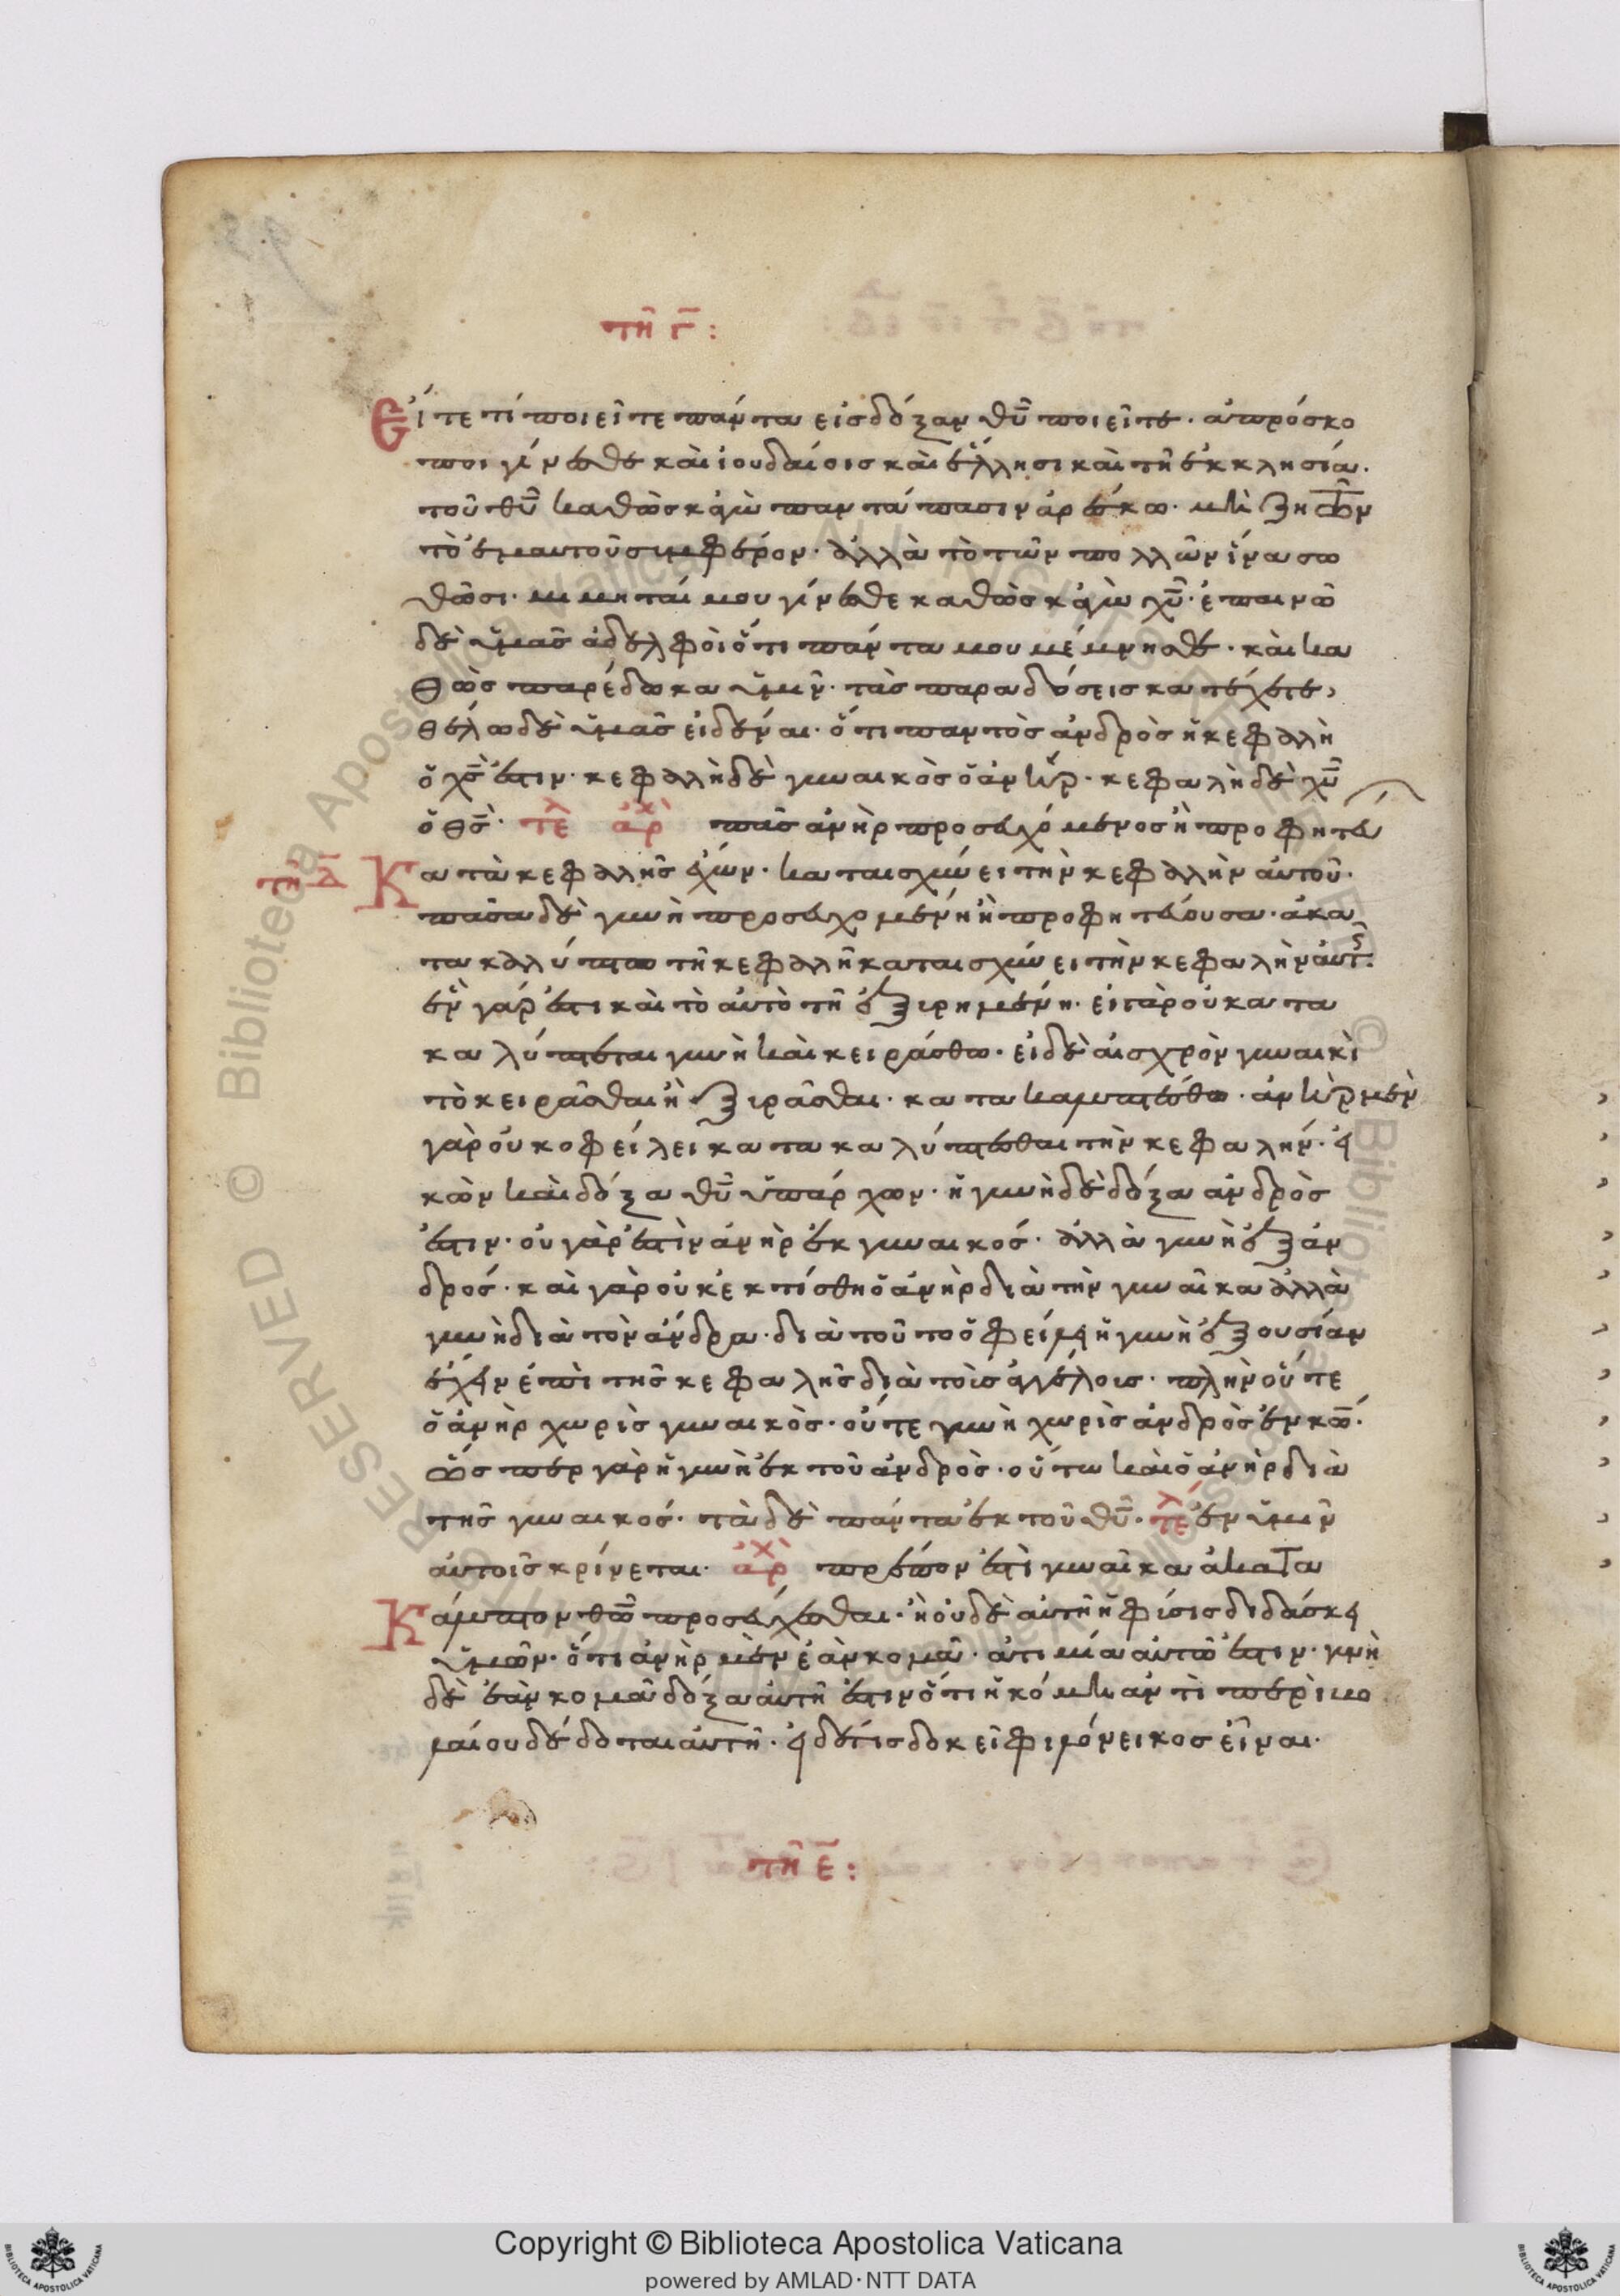 τῆ γ̅:
Εἴτε τί ποιεῖτε πάντα εἰς δόξαν θῦ ποιεῖτε. ἀπρόσκο
ποι γίνεσθε καὶ ἰουδαίοις καὶ ἕλλησι καὶ τῆ ἐκκλησία.
τοῦ θῦ καθὼς κἀγὼ πάντα πᾶσιν ἀρέσκω. μὴ ζητῶν
τὸ ἐμαυτοῦ συμφέρον. ἀλλὰ τὸ τῶν πολλῶν ἵνα σω
θῶσι. μιμηταί μου γίνεσθε καθὼς κἀγὼ χῦ. ἐπαινῶ
δὲ ὑμᾶς ἀδελφοὶ ὅτι πάντα μου μέμνησθε. καὶ κα
θὼς παρέδωκα ὑμῖν. τὰς παραδόσεις κατέχετε,
θέλω δὲ ὑμᾶς εἰδέναι. ὅτι παντὸς ἀνδρὸς ἡ κεφαλὴ
ὁ χς ἐστιν. κεφαλὴ δὲ γυναικὸς ὁ ἀνήρ. κεφαλὴ δὲ χῦ
ὁ θς. τε̅λ ἀρχ πᾶς ἀνὴρ προσευχόμενος ἢ προφητεύ
τῆ δ̅ Κατὰ κεφαλῆς ἔχων. καταισχύνει τὴν κεφαλὴν αὐτοῦ.
πᾶσα δὲ γυνὴ προσευχομένη ἢ προφητεύουσα. ἀκα
τακαλύπτω τῆ κεφαλῆ καταισχύνει τὴν κεφαλὴν αὐτῆς.
ἓν γάρ ἐστι καὶ τὸ αὐτὸ τῆ ἐξιρημένη. εἰ γὰρ οὐ κατα
καλύπτεται γυνὴ καὶ κειράσθω. εἰ δὲ αἰσχρὸν γυναικὶ
τὸ κειρᾶσθαι ἢ ξιρᾶσθαι. κατακαλυπτέσθω. ἀνὴρ μὲν
γὰρ οὐκ οφείλει κατακαλύπτεσθαι τὴν κεφαλήν. εἰ
κὼν καὶ δόξα θῦ ὑπάρχων. ἡ γυνὴ δὲ δόξα ἀνδρὸς
ἐστιν. οὐ γὰρ ἐστὶν ἀνὴρ ἐκ γυναικός. ἀλλὰ γυνὴ ἐξ ἀν
δρός. καὶ γὰρ οὐκ ἐκτίσθη ὁ ἀνὴρ διὰ τὴν γυναῖκα ἀλλὰ
γυνὴ διὰ τὸν ἄνδρα. διὰ τοῦτο ὀφείλει ἡ γυνὴ ἐξουσίαν
ἔχειν ἐπὶ τῆς κεφαλῆς διὰ τοὺς ἀγγέλους. πλὴν οὔτε
ὁ ἀνὴρ χωρὶς γυναικὸς. οὔτε γυνὴ χωρὶς ἀνδρὸς ἐν κῶ.
ὥσπερ γὰρ ἡ γυνὴ ἐκ τοῦ ἀνδρὸς. οὕτω καὶ ὁ ἀνὴρ διὰ
τῆς γυναικός. τὰ δὲ πάντα ἐκ τοῦ θῦ. τε̅λ ἐν ὑμῖν
αὐτοῖς κρίνεται. ἀρχ πρέπον ἐστὶ γυναῖκα ἀκατα
Κάλυπτον θῶ προσεύχεσθαι. ἢ οὐδὲ αὐτὴ ἡ φύσις διδάσκει
ὑμῶν. ὅτι ἀνὴρ μὲν ἐὰν κομᾶ. ἀτιμία αὐτῶ ἐστιν. γυνὴ
δὲ ἐὰν κομᾶ δόξα αὐτῆ ἐστιν ὅτι ἡ κόμη ἀντὶ περιβο
λαίου δέδοται αὐτῆ. εἰ δέ τις δοκεῖ φιλόνεικος εἶναι.
τῆ ε̅:
Copyright © Biblioteca Apostolica Vaticana
powered by AMLAD·NTT DATA